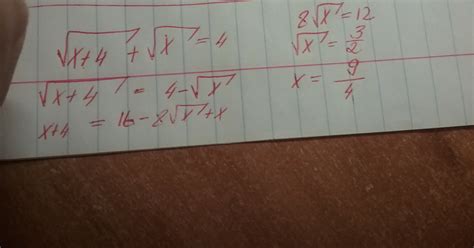 √x+4 + √x = 4
√x+4 = 4-√x
x+4 = 16-8√x+x
8√x=12
√x = 3/2
x = 9/4